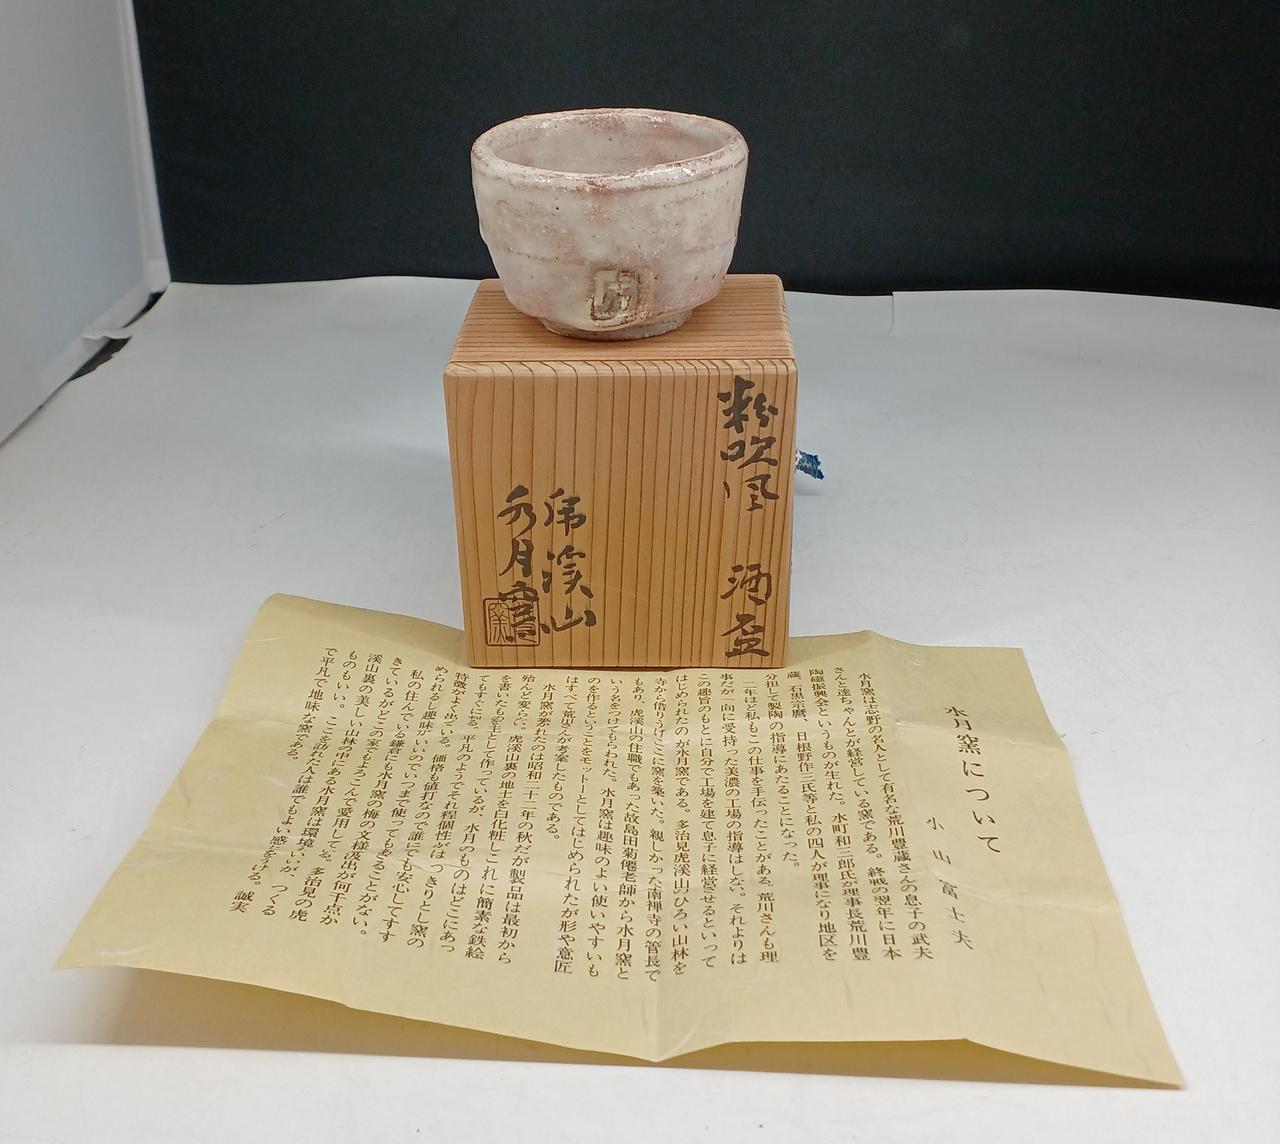 粉吹風 酒盃
虎溪山
水月窯
水月窯について
小山冨士夫
水月窯は志野の名人として有名な荒川豊蔵さんの息子の武夫
さんと達ちゃんとが経営している窯である。終戦の翌年に日本
陶磁振興会というものが生れた。水町和三郎氏が理事長荒川豊
蔵、石黒宗麿、日根野作三氏等と私の四人が理事になり地区を
分担して製陶の指導にあたることになった。
二年ほど私もこの仕事を手伝ったことがある。荒川さんも理
事だが一向に受持った美濃の工場の指導はしない。それよりは
この趣旨のもとに自分で工場を建て息子に経営させるといって
はじめられたのが水月窯である。多治見虎渓山のひろい山林を
寺から借りうけここに窯を築いた。親しかった南禅寺の管長で
もあり、虎渓山の住職でもあった故島田菊僊老師から水月窯と
いう名をつけてもらられた。水月窯は趣味のよい使いやすいも
のを作るということをモットーとしてはじめられたが形や意匠
はすべて荒川さんが考案したものである。
水月窯が築れたのは昭和二十二年の秋だが製品は最初から
殆んど変らない。虎渓山裏の地土を白化粧しこれに簡素な鉄絵
を書いたものを主として作っているが、水月のものはどこにあっ
てもすぐに判る。平凡のようでそれ程個性がはっきりとし窯の
特徴がよく出ている。価格も値打なので誰にでも安心してすす
められるし趣味がいいのでいつまで使ってもあきることがない。
私の住んでいる鎌倉にも水月窯の梅の文様汲出が何千点か
きているがどこの家でもよろこんで愛用してる。多治見の虎
渓山裏の美しい山林の中にある水月窯は環境もいいが、つくる
ものもいい。ここを訪れた人は誰でもよい感をうける。誠実
で平凡で地味な窯である。